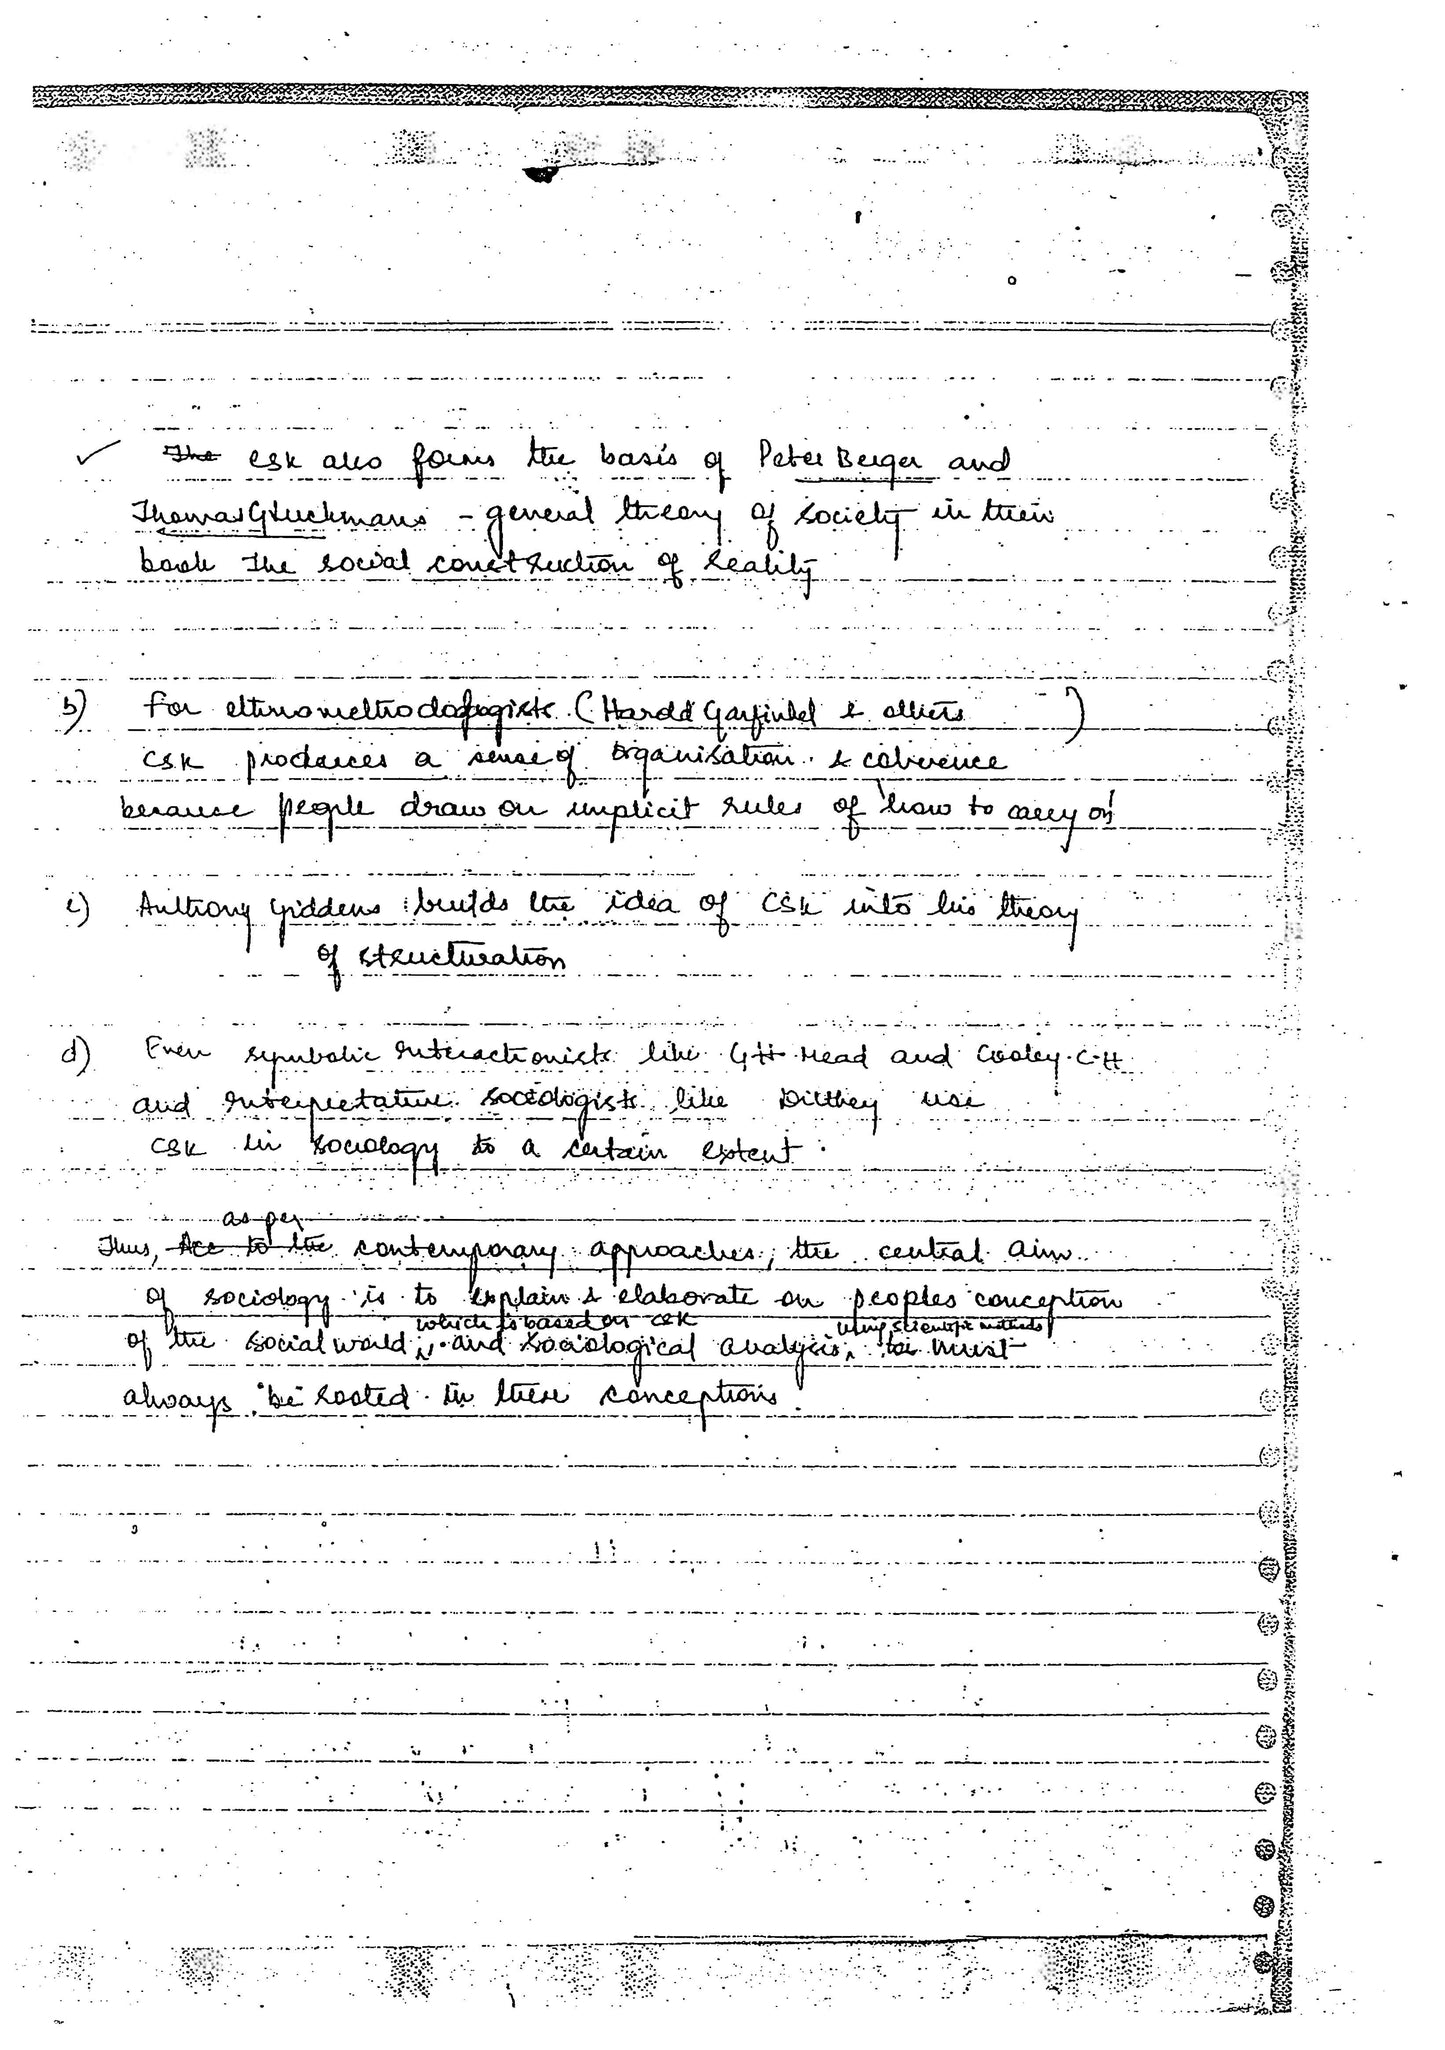 ✓ ~~The~~ CSK also forms the basis of Peter Berger and
Thomas Gluckmans - general theory of society in their
book The social construction of reality
b) For ethnomethodologists (Harold Garfinkel & others )
CSK produces a sense of organisation & coherence
because people draw on implicit rules of 'how to carry on'
c) Anthony Giddens builds the idea of CSK into his theory
of structuration
d) Even symbolic interactionists like GH Mead and Cooley C.H
and interpretative sociologists like Dilthey use
CSK in sociology to a certain extent.
as per
Thus, ~~Acc to the~~ contemporary approaches, the central aim
of sociology is to explain & elaborate on peoples conception
which is based on CSK using scientific methods
of the social world, and sociological analysis, must
always be rooted in these conceptions.